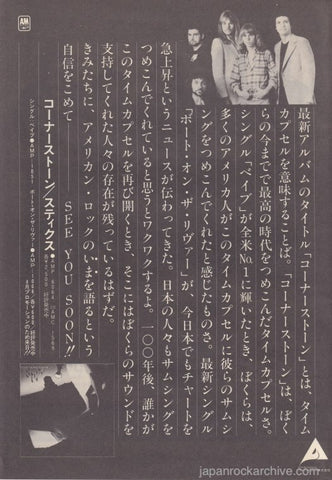 A&M
最新アルバムのタイトル「コーナーストーン」とは、タイム
カプセルを意味することば。「コーナーストーン」は、ぼく
らの今までで最高の時代をつめこんだタイムカプセルさ。
シングル「ベイブ」が全米No.1に輝いたとき、ぼくらは、
多くのアメリカ人がこのタイムカプセルに彼らのサムシ
ングをつめこんでくれたと感じたものさ。最新シングル
「ボート・オン・ザ・リヴァー」が、今日本でもチャートを
急上昇というニュースが伝わってきた。日本の人々もサムシングを
つめこんでくれていると思うとワクワクするよ。一〇〇年後、誰かが
このタイムカプセルを再び開くとき、そこにはぼくらのサウンドを
支持してくれた人々の存在が残っているはずだ。
きみたちに、アメリカン・ロックのいまを語るという
自信をこめて―― SEE YOU SOON!!
コーナーストーン/スティクス
japanrockarchive.com